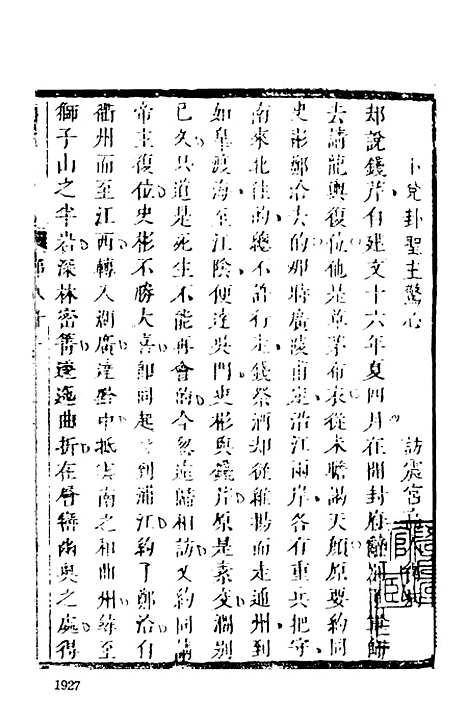 卜兌卦聖主驚心 訪震宮
却說錢芹自建文十六年夏四月在開封府辭別軍師
去請龍輿復位他是草茅布衣從未瞻謁天顏原要約同
史彬鄭洽去的那時廣陵南至沿江兩岸各有重兵把守
南來北往的總不許行走錢芹酒却從維揚而走通州到
如皋渡海至江陰便達吳門史彬與錢芹原是素交濶別
已久只道是死生不能再會的今忽遠歸相訪又約同請
帝主復位史彬不勝大喜卽同起身到浦江約了鄭洽自
衢州而至江西轉入湖廣達黔中抵雲南之和曲州緣至
獅子山之李岩深林密箐逶迤曲折在層幽奧之處得
1927